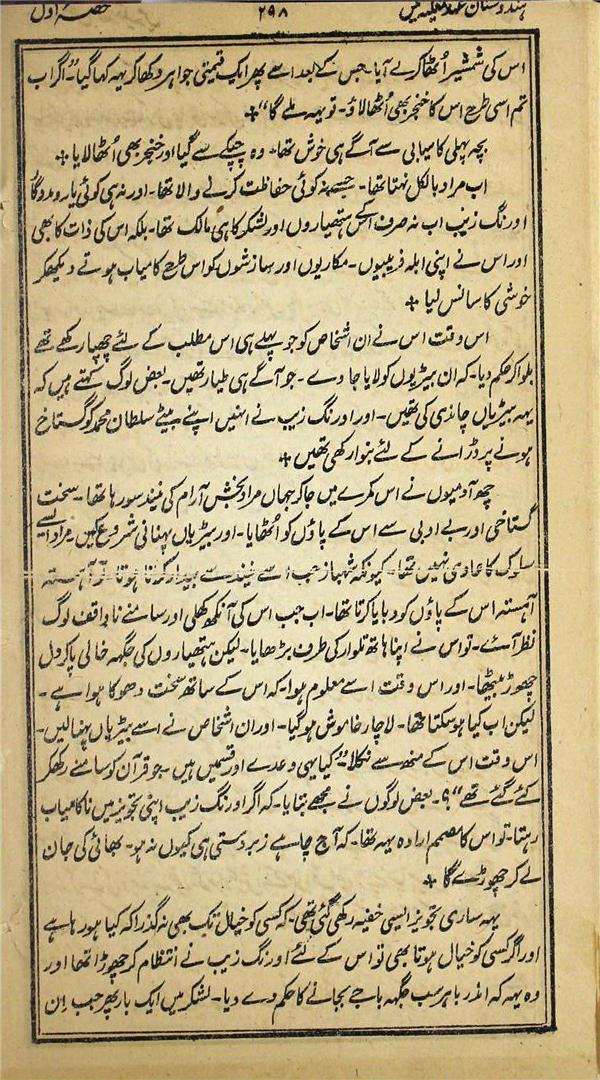 ہندوستان عہد مغلیہ میں ۲۹۸ حصہ اول
اس کی شمشیر اُٹھا کر لے آیا۔ جس کے بعد اسے پھر ایک قیمتی جواہر دکھا کر یہہ کہا گیا۔ "اگر اب
تم اسی طرح اس کا خنجر بھی اُٹھا لاؤ۔ تو یہہ ملے گا" ٭
بچہ پہلی کامیابی سے آگے ہی خوش تھا۔ وہ چپکے سے گیا اور خنجر بھی اُٹھا لایا ٭
اب مراد بالکل نہتا تھا۔ جسے نہ کوئی حفاظت کرنے والا تھا۔ اور نہ ہی کوئی یار و مددگار
اورنگ زیب اب نہ صرف اس کے ہتھیاروں اور لشکر کا ہی مالک تھا۔ بلکہ اس کی ذات کا بھی
اور اس نے اپنی ابلہ فریبیوں۔ مکاریوں اور سازشوں کو اس طرح کامیاب ہوتے دیکھکر
خوشی کا سانس لیا ٭
اس وقت اس نے ان اشخاص کو جو پہلے ہی اس مطلب کے لئے چھپا رکھے تھے
بلوا کر حکم دیا۔ کہ ان بیڑیوں کو لایا جاوے۔ جو آگے ہی طیار تھیں۔ بعض لوگ کہتے ہیں کہ
یہہ بیڑیاں چاندی کی تھیں۔ اور اورنگ زیب نے انہیں اپنے بیٹے سلطان محمد کو گستاخ
ہونے پر ڈرانے کے لئے بنوا رکھی تھیں ٭
چھ آدمیوں نے اس کمرے میں جا کر جہاں مراد بخش آرام کی نیند سو رہا تھا۔ سخت
گستاخی اور بے ادبی سے اس کے پاؤں کو اُٹھایا۔ اور بیڑیاں پہنانی شروع کیں۔ مراد ایسے
سلوک کا عادی نہیں تھا۔ کیونکہ شہباز جب اسے نیند سے بیدار کرنا ہوتا تو آہستہ
آہستہ اس کے پاؤں کو دبایا کرتا تھا۔ اب جب اس کی آنکھ کھلی اور سامنے ناواقف لوگ
نظر آئے۔ تو اس نے اپنا ہاتھ تلوار کی طرف بڑھایا۔ لیکن ہتھیاروں کی جگہہ خالی پا کر دل
چھوڑ بیٹھا۔ اور اس وقت اسے معلوم ہوا۔ کہ اس کے ساتھ سخت دھوکا ہوا ہے۔
لیکن اب کیا ہو سکتا تھا۔ لاچار خاموش ہو گیا۔ اور ان اشخاص نے اسے بیڑیاں پہنا لیں۔
اس وقت اس کے منھ سے نکلا۔ "کیا یہی وعدے اور قسمیں ہیں۔ جو قرآن کو سامنے رکھکر
کئے گئے تھے"؟۔ بعض لوگوں نے مجھے بتایا۔ کہ اگر اورنگ زیب اپنی تجویز میں ناکامیاب
رہتا۔ تو اس کا مصمم ارادہ یہہ تھا۔ کہ آج چاہے زبردستی ہی کیوں نہ ہو۔ بھائی کی جان
لے کر چھوڑے گا ٭
یہہ ساری تجویز ایسی خفیہ رکھی گئی تھی۔ کہ کسی کو خیال تک بھی نہ گذرا کہ کیا ہو رہا ہے
اور اگر کسی کو خیال ہوتا بھی تو اس کے لئے اورنگ زیب نے انتظام کر چھوڑا تھا اور
وہ یہہ کہ اندر باہر سب جگہہ باجے بجانے کا حکم دے دیا۔ لشکر میں ایک بار پھر جب اِن